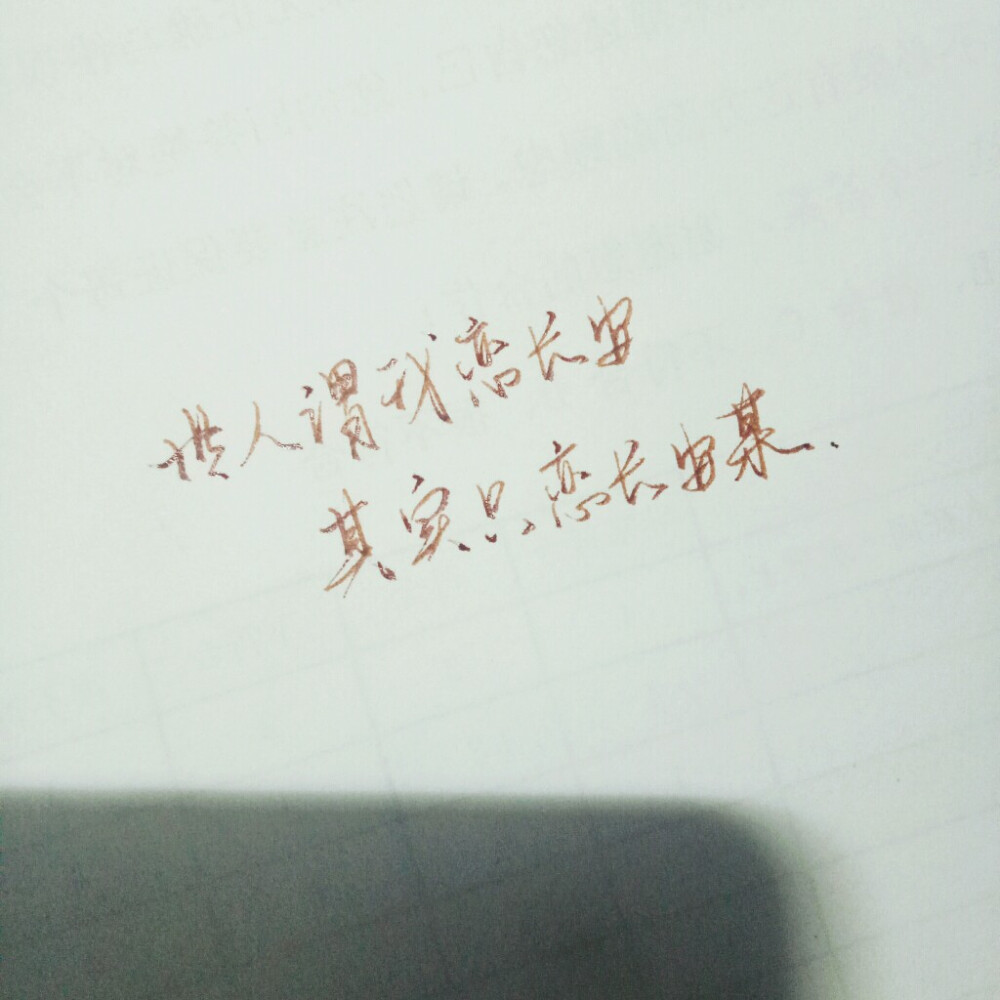 世人谓我恋长安
其实只恋长安某.